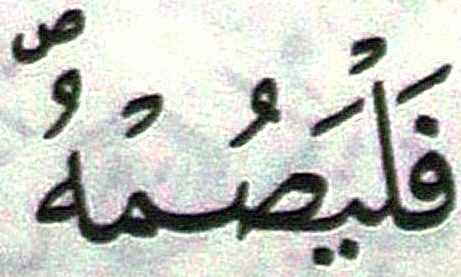 فَلْيَصُمْهُ ۖ ص